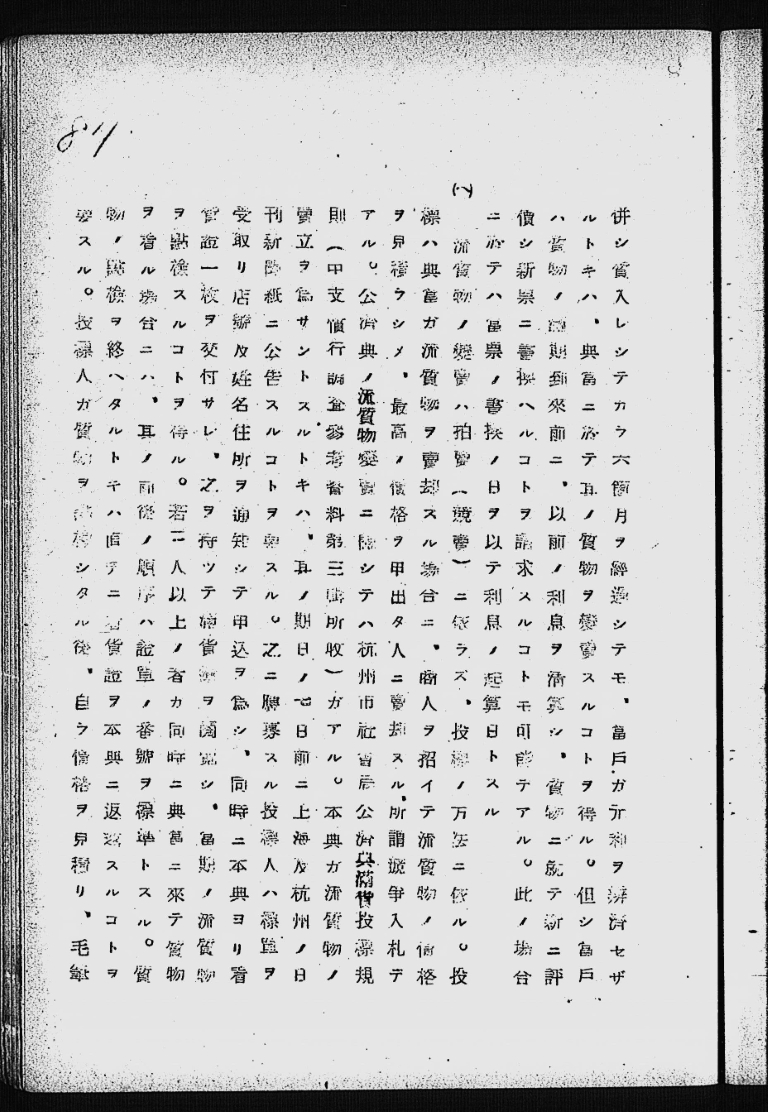 84
併シ質入レシテカラ六箇月ヲ經過シテモ、當戶ガ元利ヲ辨濟セザ
ルトキハ、典當ニ於テ其ノ質物ヲ變賣スルコトヲ得ル。但シ當戶
ハ質物ノ滿期到來前ニ、以前ノ利息ヲ清算シ、質物ニ就テ新ニ評
價シ新票ニ書換ヘルコトヲ請求スルコトモ可能デアル。此ノ場合
ニ於テハ當票ノ書換ノ日ヲ以テ利息ノ起算日トスル
(ヘ) 流質物ノ變賣ハ拍賣(競賣)ニ依ラズ、投標ノ方法ニ依ル。投
標ハ典當ガ流質物ヲ賣却スル場合ニ、商人ヲ招イテ流質物ノ價格
ヲ見積ラシメ、最高ノ價格ヲ申出タ人ニ賣却スル、所謂競爭入札デ
アル。公濟典ノ流質物變賣ニ際シテハ杭州市社會局公濟典滿貨投標規
則(中支慣行調査參考資料第三輯所收)ガアル。本典ガ流質物ノ
賣立ヲ爲サントスルトキハ、其ノ期日ノ七日前ニ上海及杭州ノ日
刊新聞紙ニ公告スルコトヲ要スル。之ニ應募スル投標人ハ標單ヲ
受取リ店號及姓名住所ヲ通知シテ申込ヲ爲シ、同時ニ本典ヨリ看
貨證一枚ヲ交付サレ、之ヲ持ツテ滿貨 ヲ シ、當期ノ流質物
ヲ點檢スルコトヲ得ル。若二人以上ノ者カ同時ニ典當ニ來テ質物
ヲ看ル場合ニハ、其ノ前後ノ順序ハ證單ノ番號ヲ標準トスル。質
物ノ點檢ヲ終ヘタルトキハ直チニ看貨證ヲ本典ニ返還スルコトヲ
要スル。投標人ガ質物ヲ點檢シタル後、自ラ價格ヲ見積リ、毛筆